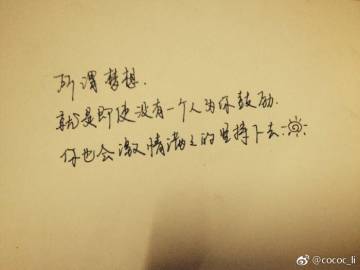 所谓梦想.
就是即使没有一个人为你鼓励.
你也会激情满之的坚持下去
@cococ_li